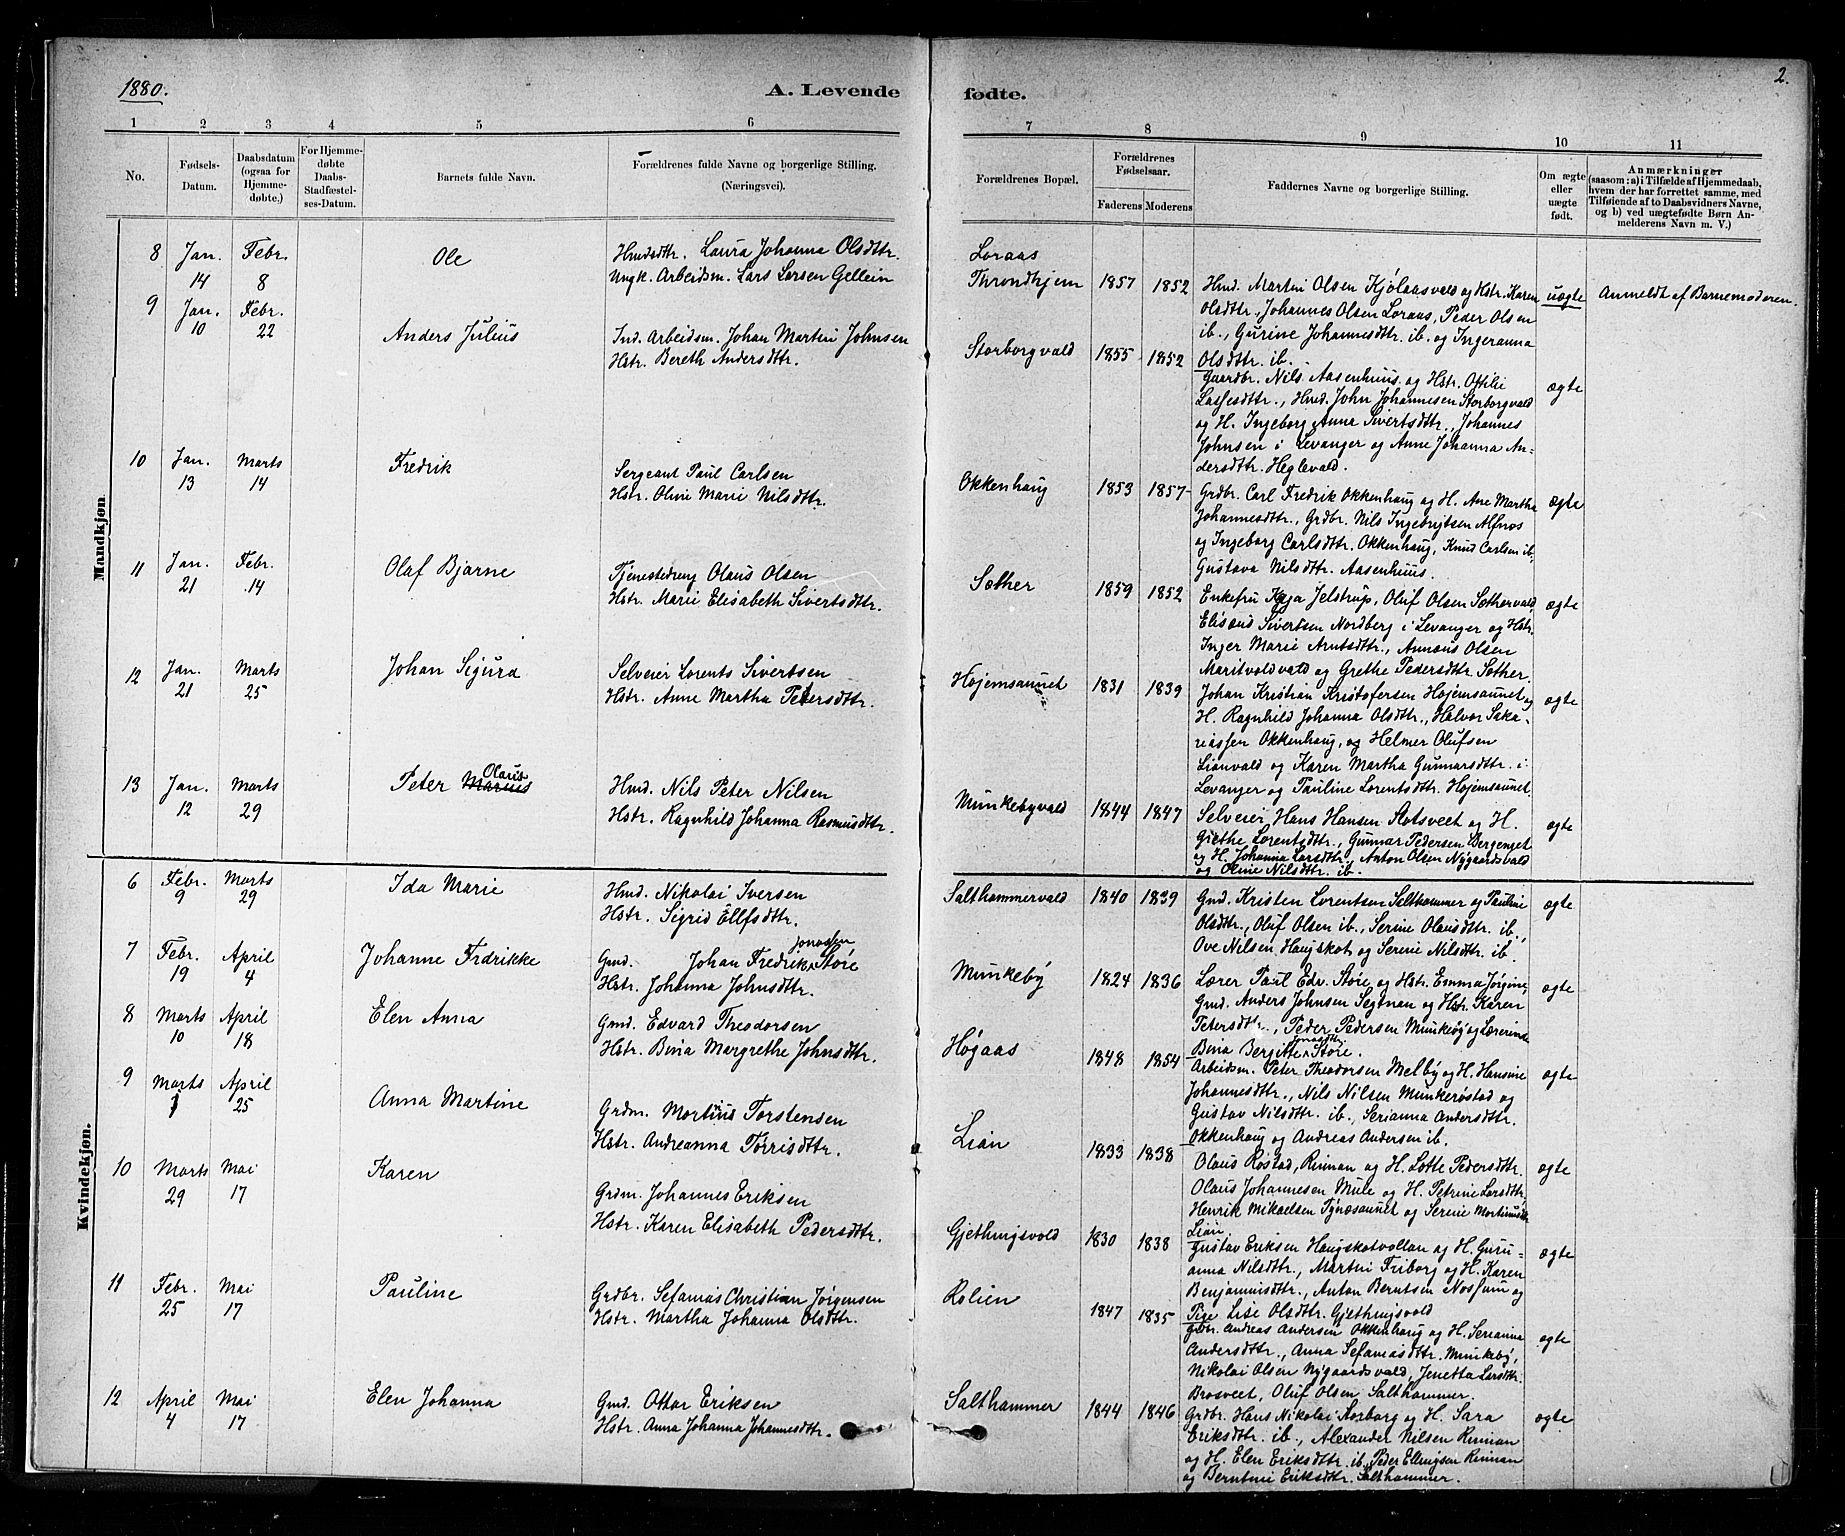 1880.
A. Levende fødte.
2.
1 2 3 4 5 6 7 8 9 10 11
No.
Fødsels-
Datum.
Daabsdatum
(ogsaa for
Hjemme-
døbte.)
For Hjemme-
døbte
Daabs-
Stadfæstel-
ses-Datum.
Barnets fulde Navn.
Forældrenes fulde Navne og borgerlige Stilling.
(Næringsvei).
Forældrenes Bopæl.
Forældrenes
Fødselsaar.
Faderens Moderens
Faddernes Navne og borgerlige Stilling.
Om ægte
eller
uægte
født.
Anmærkninger
(saasom: a) i Tilfælde af Hjemmedaab,
hvem der har forrettet samme, med
Tilføiende af to Daabsvidners Navne,
og b) ved uægtefødte Børn An-
melderens Navn m. V.)
Mandkjøn
8
Jan.
14
Febr.
8
Ole
Hmdsdttr. Laura Johanna Olsdttr.
Ungk. Arbeidsm. Lars Larsen Gellein
Loraas
Throndhjem
1857 1852
Hmd. Martin Olsen Kjölaasvald og Hstr. Karen
Olsdttr., Johannes Olsen Loraas, Peder Olsen
ib., Gurine Johannesdttr. ib. og Ingeranna
Olsdttr. ib.
uægte
Anmeldt af Barnemoderen.
9
Jan.
10
Febr.
22
Anders Julius
Ind. Arbeidsm. Johan Martin Johnsen
Hstr. Bereth Andersdttr.
Storborgvald
1855 1852
Gaardbr. Nils Aasenhuus og Hstr. Otilie
Lassesdttr., Hmd. John Johannesen Storborgvald
og H. Ingeborg Anna Sivertsdttr., Johannes
Johnsen i Levanger og Anne Johanna An-
dersdttr. Heglevald.
ægte
10
Jan.
13
Marts
14
Fredrik
Sergeant Paul Carlsen
Hstr. Oline Marie Nilsdttr.
Okkenhaug
1853 1857
Grdbr. Carl Fredrik Okkenhaug og H. Ane Martha
Johannesdttr., Grdbr. Nils Ingebrigtsen Alfnes
og Ingeborg Carlsdttr. Okkenhaug, Knud Carlsen ib.,
Gustava Nilsdttr. Aasenhuus.
ægte
11
Jan.
21
Febr.
14
Olaf Bjarne
Tjenestedreng Olaus Olsen
Hstr. Marie Elisabeth Sivertsdttr.
Sæther
1859 1852
Enkefru Kaja Jelstrup, Oluf Olsen Sæthervald
Elisæus Sivertsen Nordberg i Levanger og Hstr.
Inger Marie Arntsdttr., Annæus Olsen
Maritvoldvald og Grethe Pedersdttr. Sæther.
ægte
12
Jan.
21
Marts
25
Johan Sigurd
Selveier Lorents Sivertsen
Hstr. Anne Martha Petersdttr.
Højemsaunet
1831 1839
Johan Kristian Kristofersen Højemsaunet og
H. Ragnhild Johanna Olsdttr., Halvor Saka-
riassen Okkenhaug, og Helmer Olufsen
Lianvald og Karen Martha Gunnarsdttr. i
Levanger og Pauline Lorentsdttr. Højemsaunet.
ægte
13
Jan.
12
Marts
29
Peter Marius Olaus
Hmd. Nils Peter Nilsen
Hstr. Ragnhild Johanna Rasmusdttr.
Munkebyvald
1844 1847
Selveier Hans Hansen Slotsveet og H.
Grethe Lorentsdttr., Gunnar Pedersen Bergenget
og H. Johanna Larsdttr., Anton Olsen Nygaardsvald
og Oline Nilsdttr. ib.
ægte
Kvindekjøn.
6
Febr.
9
Marts
29
Ida Marie
Hmd. Nikolai Iversen
Hstr. Sigrid Ellfsdttr.
Salthammervald
1840 1839
Gmd. Kristen Lorentsen Salthammer og Pauline
Olsdttr., Oluf Olsen ib., Serine Olausdttr. ib.,
Ove Nilsen Haugskot og Serine Nilsdttr. ib.
ægte
7
Febr.
19
April
4
Johanne Fredrikke
Gmd. Johan Fredrik Jonassen Støre
Hstr. Johanna Johnsdttr.
Munkeby
1824 1836
Lærer Paul Edv. Støre og Hstr. Emma Jörgine
Gmd. Anders Johnsen Segtnan og Hstr. Karen
Petersdttr., Peder Pedersen Munkeby og Lærerinde
Bina Bergitte Jonasdttr. Støre.
ægte
8
Marts
10
April
18
Elen Anna
Gmd. Edvard Theodorsen
Hstr. Bina Margrethe Johnsdttr.
Høgaas
1848 1854
Arbeidsm. Peter Theodorsen Melby og H. Hansine
Johannesdttr., Nils Nilsen Munkerøstad og
Gustav Nilsdttr. ib., Serianna Andersdttr.
Okkenhaug og Andreas Andersen ib.
ægte
9
Marts
1
April
25
Anna Martine
Grdm. Mortinus Torstensen
Hstr. Andreanna Tørrisdttr.
Lian
1833 1838
Olaus Røstad, Rinnan og H. Lotte Pedersdttr.
Olaus Johannesen Mule og H. Petrine Larsdttr,
Henrik Mikaelsen Tynæsaunet og Serine Mortinusdttr
Lian.
ægte
10
Marts
29
Mai
17
Karen
Grdm. Johannes Eriksen
Hstr. Karen Elisabeth Pedersdttr.
Gjethingsvold
1830 1838
Gustav Eriksen Haugskotvollan og H. Guru-
anna Nilsdttr., Martin Friborg og H. Karen
Benjaminsdttr., Anton Berntsen Nossum og
Pige Lise Olsdttr. Gjethingsvold
ægte
11
Febr.
25
Mai
17
Pauline
Grdbr. Sefanias Christian Jørgensen
Hstr. Martha Johanna Olsdttr.
Rolien
1847 1835
Grdbr. Andreas Andersen Okkenhaug og H. Serianna
Andersdttr., Anna Sefaniasdttr. Munkeby,
Nikolai Olsen Nygaardsvald, Jenetta Larsdttr.
Brosveet, Oluf Olsen Salthammer.
ægte
12
April
4
Mai
17
Elen Johanna
Gmd. Ottar Eriksen
Hstr. Anna Johanna Johannesdttr.
Salthammer
1844 1846
Grdbr. Hans Nikolai Storborg og H. Sara
Eriksdttr. ib., Alexander Nilsen Rinnan
og H. Elen Eriksdttr. ib., Peder Ellingsen Rinnan
og Berntine Eriksdttr. Salthammer.
ægte